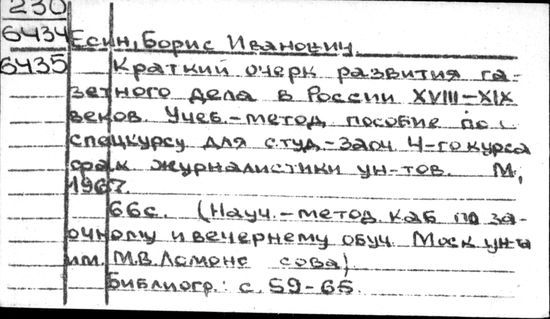 230
6434
6435
Есин, Борис Иванович.
Краткий очерк развития га-
зетного дела в России XVIII-XIX
веков. Учеб.-метод. пособие по
спецкурсу для студ.-заоч. 4-го курса
фак. журналистики ун-тов. М.,
1967.
66с. (Науч.-метод. каб. по за-
очному и вечернему обуч. Моск ун-та
им. М.В. Ломоно сова)
Библиогр.: с. 59-65.